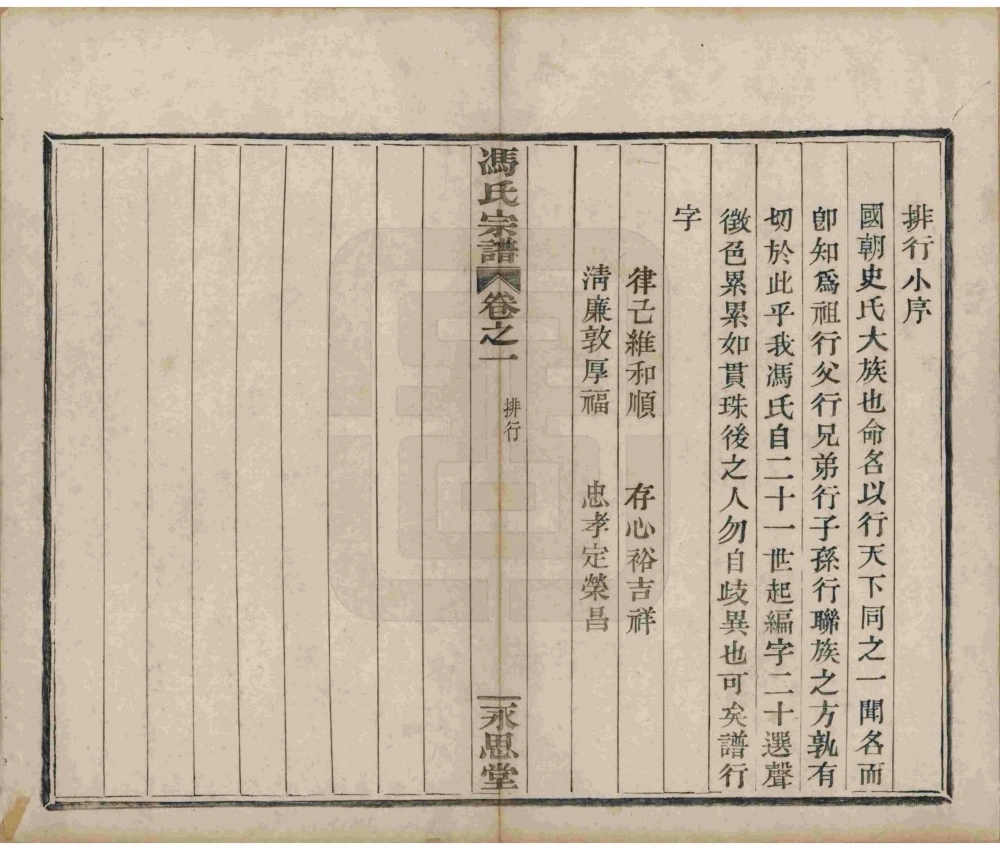 排行小序
國朝史氏大族也命名以行天下同之一聞名而
卽知爲祖行父行兄弟行子孫行聯族之方孰有
切於此乎我馮氏自二十一世起編字二十選聲
徵色累累如貫珠後之人勿自歧異也可矣譜行
字
律己維和順 存心裕吉祥
淸廉敦厚福 忠孝定榮昌
馮氏宗譜 卷之一 排行 一 永思堂